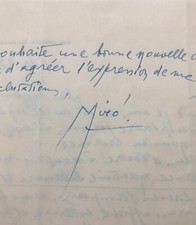 souhaite une bonne nouvelle a
d'agréer l'expression de me
lutations,
Miró!